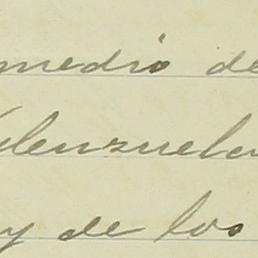 medio de
Valenzuela
y de los